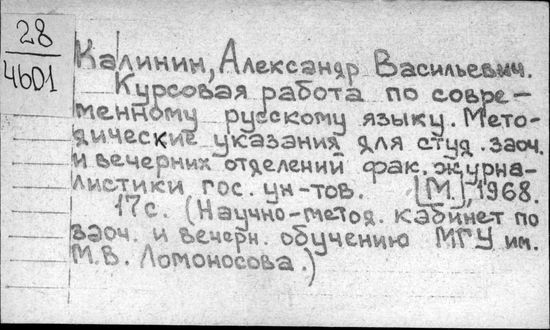 28
4601
Калинин, Александр Васильевич.
Курсовая работа по совре-
менному русскому языку. Мето-
дические указания для студ. заоч.
и вечерних отделений фак. журна-
листики гос. ун-тов. [М.], 1968.
17 с. (Научно-метод. кабинет по
заоч. и вечерн. обучению МГУ им.
М.В. Ломоносова.)